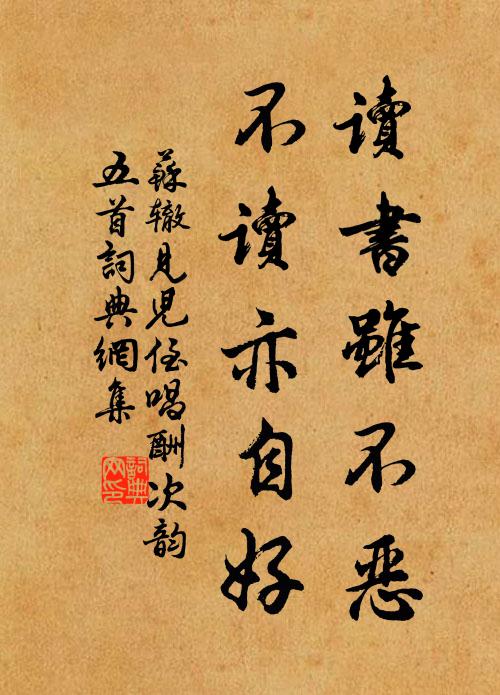 讀書雖不惡
不讀亦自好
蘇辙見兒侄唱酬次韵
五首詞典網集
詞典
网印